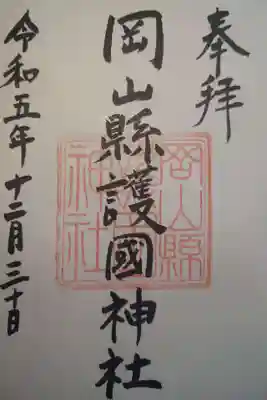 奉拝
岡山縣護國神社
令和五年十二月三十日
岡山縣
護國
神社